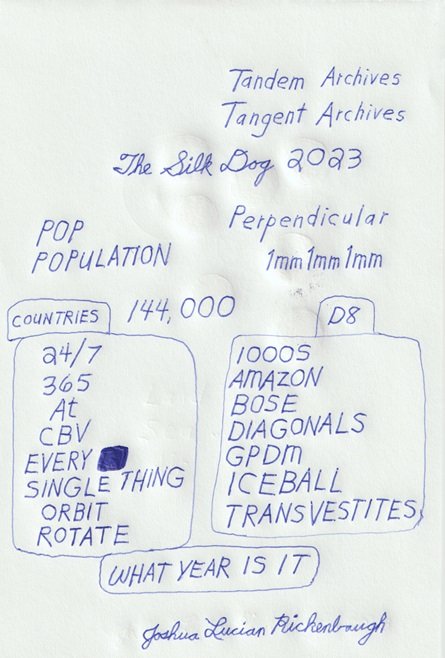 Tandem Archives
Tangent Archives
The Silk Dog 2023
POP
POPULATION
Perpendicular
1mm1mm1mm
COUNTRIES
144,000
D8
24/7
365
At
CBV
EVERY
SINGLE THING
ORBIT
ROTATE
1000S
AMAZON
BOSE
DIAGONALS
GPDM
ICEBALL
TRANSVESTITES
WHAT YEAR IS IT
Joshua Lucian Richenbaugh